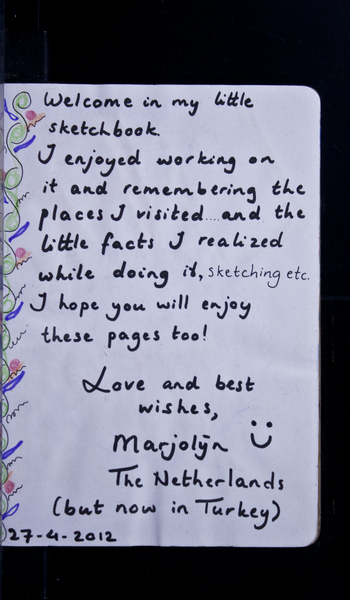 Welcome in my little
sketchbook.
I enjoyed working on
it and remembering the
places I visited....and the
little facts I realized
while doing it, sketching etc.
I hope you will enjoy
these pages too!
Love and best
wishes,
Marjolijn
The Netherlands
(but now in Turkey)
27-4-2012